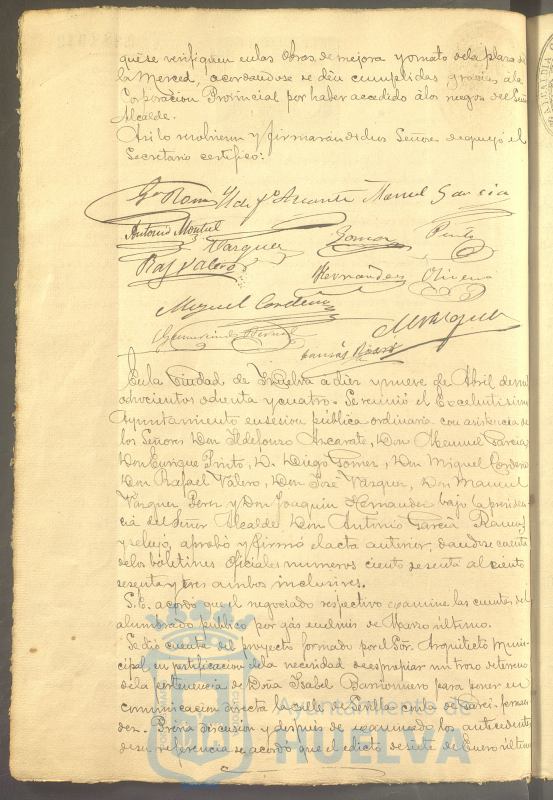 que se verifiquen en las obras de mejora y ornato de la plaza de
la Merced, acordandose se dén cumplidas gracias á la
Corporacion Provincial por haber accedido á los ruegos del Señor
Alcalde.
Asi lo resolvieron y firmarán dichos Señores de que yo el
Secretario certifico:
Ildefonso Azcarate Manuel Garcia
Antonio Montiel
Vazquez Gomez Pinto
Raf Valero
Hernandez Oliveros
Miguel Cordero
M Vazquez
En la Ciudad de Huelva a diez y nueve de Abril de mil
ochocientos ochenta y cuatro. Se reunió el Excelentisimo
Ayuntamiento en sesion pública ordinaria con asistencia de
los Señores Don Ildefonso Azcarate, Don Manuel Garcia
Don Enrique Pinto, D. Diego Gomez, Don Miguel Cordero
Don Rafael Valero, Don José Vazquez, Don Manuel
Vazquez Perez y Don Joaquin Hernandez bajo la presiden-
cia del Señor Alcalde Don Antonio Garcia Ramos
y se leyó, aprobó y firmó el acta anterior, dandose cuenta
de los boletines oficiales numeros ciento sesenta al ciento
sesenta y tres ambos inclusives.
S.E. acordó que el negociado respectivo examine las cuentas del
alumbrado público por gás en el mes de Marzo último.
Se dió cuenta del proyecto formado por el Sor. Arquitecto Muni-
cipal en justificacion de la necesidad de espropiar un trozo de terreno
de la pertenencia de Doña Isabel Barrionuevo para poner en
comunicacion directa la calle de Sevilla con la de
Prévia discusion y despues de examinado los antecedentes
de su referencia se acordó que el edicto de siete de Enero último
Ayuntamiento de
HUELVA